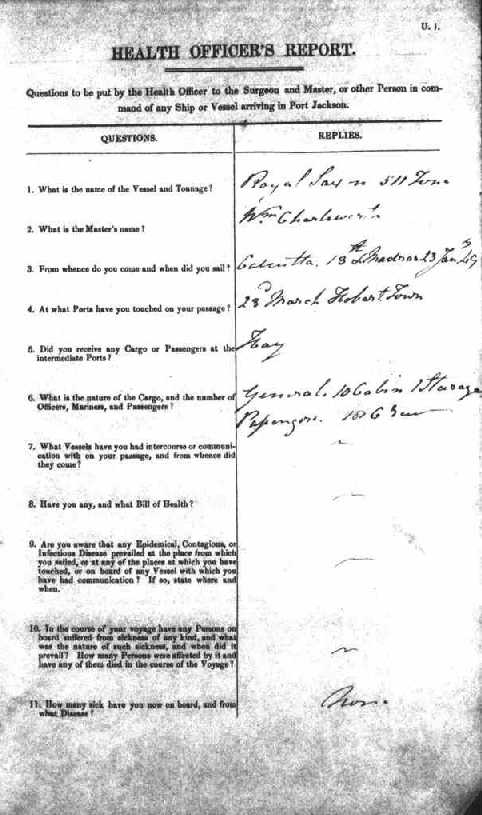 U. 1.
HEALTH OFFICER'S REPORT.
Questions to be put by the Health Officer to the Surgeon and Master, or other Person in com-
mand of any Ship or Vessel arriving in Port Jackson.
QUESTIONS.
REPLIES.
1. What is the name of the Vessel and Tonnage?
Royal Saxon 511 Tons
2. What is the Master's name?
Wm Charlesworth
3. From whence do you come and when did you sail?
Calcutta. 13th Madras 23 Jany 49
4. At what Ports have you touched on your passage?
23 March Hobart Town
5. Did you receive any Cargo or Passengers at the
intermediate Ports?
Hay
6. What is the nature of the Cargo, and the number of
Officers, Mariners, and Passengers?
General. 10 Cabin 1 Steerage
Passengers. Crew
7. What Vessels have you had intercourse or communi-
cation with on your passage, and from whence did
they come?
8. Have you any, and what Bill of Health?
9. Are you aware that any Epidemical, Contagious, or
Infectious Disease prevailed at the place from which
you sailed, or at any of the places at which you have
touched, or on board of any Vessel with which you
have had communication? If so, state where and
when.
10. In the course of your voyage have any Persons on
board suffered from sickness of any kind, and what
was the nature of such sickness, and when did it
prevail? How many Persons were affected by it and
have any of them died in the course of the Voyage?
11. How many sick have you now on board, and from
what Disease?
None